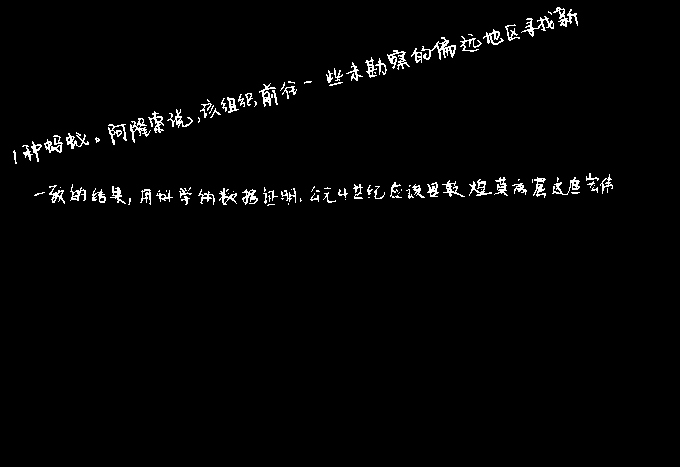 1种蚂蚁。阿隆索说,该组织前往一些未勘察的偏远地区寻找新
一致的结果,用科学的数据证明,公元4世纪应该是敦煌莫高窟这座宏伟